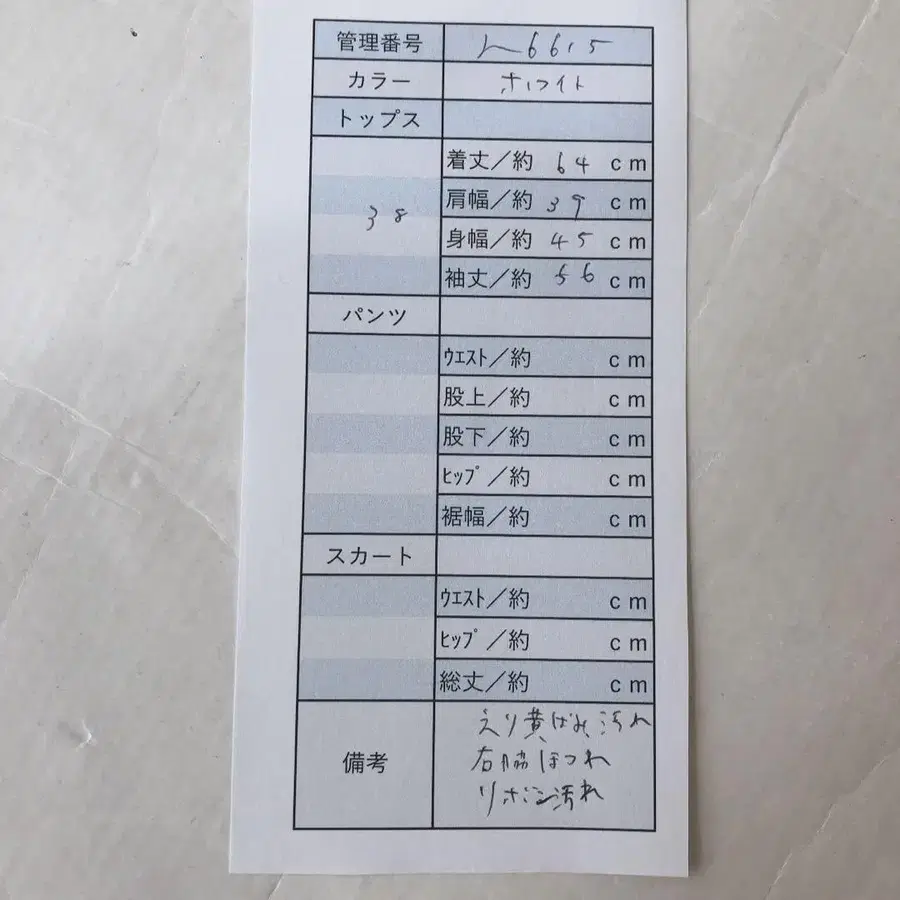 管理番号 L6615
カラー ホワイト
トップス
38
着丈／約 64 cm
肩幅／約 39 cm
身幅／約 45 cm
袖丈／約 56 cm
パンツ
ｳｴｽﾄ／約 cm
股上／約 cm
股下／約 cm
ﾋｯﾌﾟ／約 cm
裾幅／約 cm
スカート
ｳｴｽﾄ／約 cm
ﾋｯﾌﾟ／約 cm
総丈／約 cm
備考
えり黄ばみ汚れ
右脇ほつれ
リボン汚れ